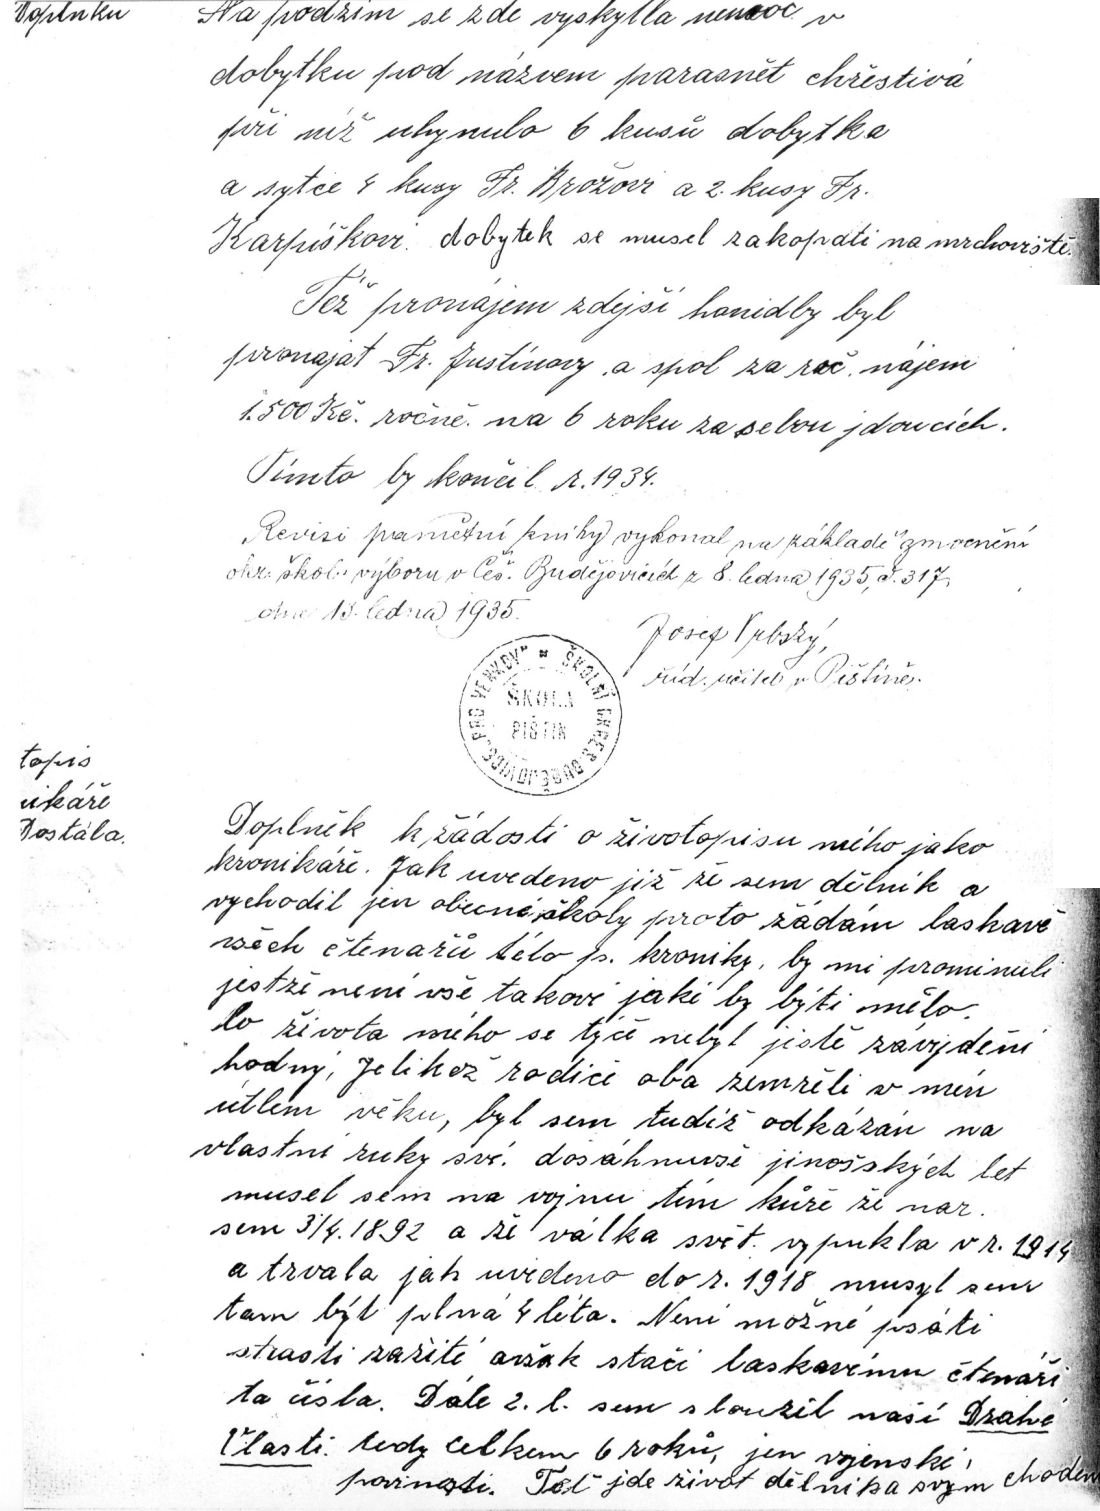 Doplňku
Na podzim se zde vyskytla nemoc v
dobytku pod názvem parasnět chřestivá
při níž uhynulo 6 kusů dobytka
a sytce 4 kusy Fr. Brožovi a 2. kusy Fr.
Karpíškovi. dobytek se musel zakopati na mrchoviště.
Též pronájem zdejší honidby byl
pronajat Fr. Justinovy a spol za roč. nájem
1.500 Kč. ročně. na 6 roku za sebou jdoucích.
Tímto by končil r. 1934.
Revisi pamětní knihy vykonal na základě zmocnění
okr. škol. výboru v Čes. Budějovicích z 8. ledna 1935, č. 317,
dne 13. ledna 1935.
Josef Vrbský,
říd. učitel v Pištíně.
ŠKOLNÍ OKRES BUDĚJOVICE, PRO VENKOV
ŠKOLA
PIŠTIN
topis
nikáře
Dostála.
Doplněk k žádosti o životopisu mého jako
kronikáře. Jak uvedeno již že sem dělník a
vychodil jen obecné školy proto žádám laskavě
všech čtenařů této p. kroniky, by mi prominuli
jestže není vše takové jaké by býti mělo.
Co života mého se týče nebyl jistě závydění
hodný, Jelikož rodiče oba zemřeli v mém
útlém věku, byl sem tudíž odkázán na
vlastní ruky své. dosáhnuvše jinošských let
musel sem na vojnu tím kůře že nar.
sem 3/4. 1892 a že válka svět. vypukla v r. 1914
a trvala jak uvedeno do r. 1918 musyl sem
tam být plná 4 léta. Není možné psáti
strasti zažité avšak stačí laskavému čtenáři
ta čísla. Dále 2. l. sem sloužil naší Drahé
Vlasti. tedy celkem 6 roků, jen vojenské
povinosti. Teď jde život dělníka svým chodem